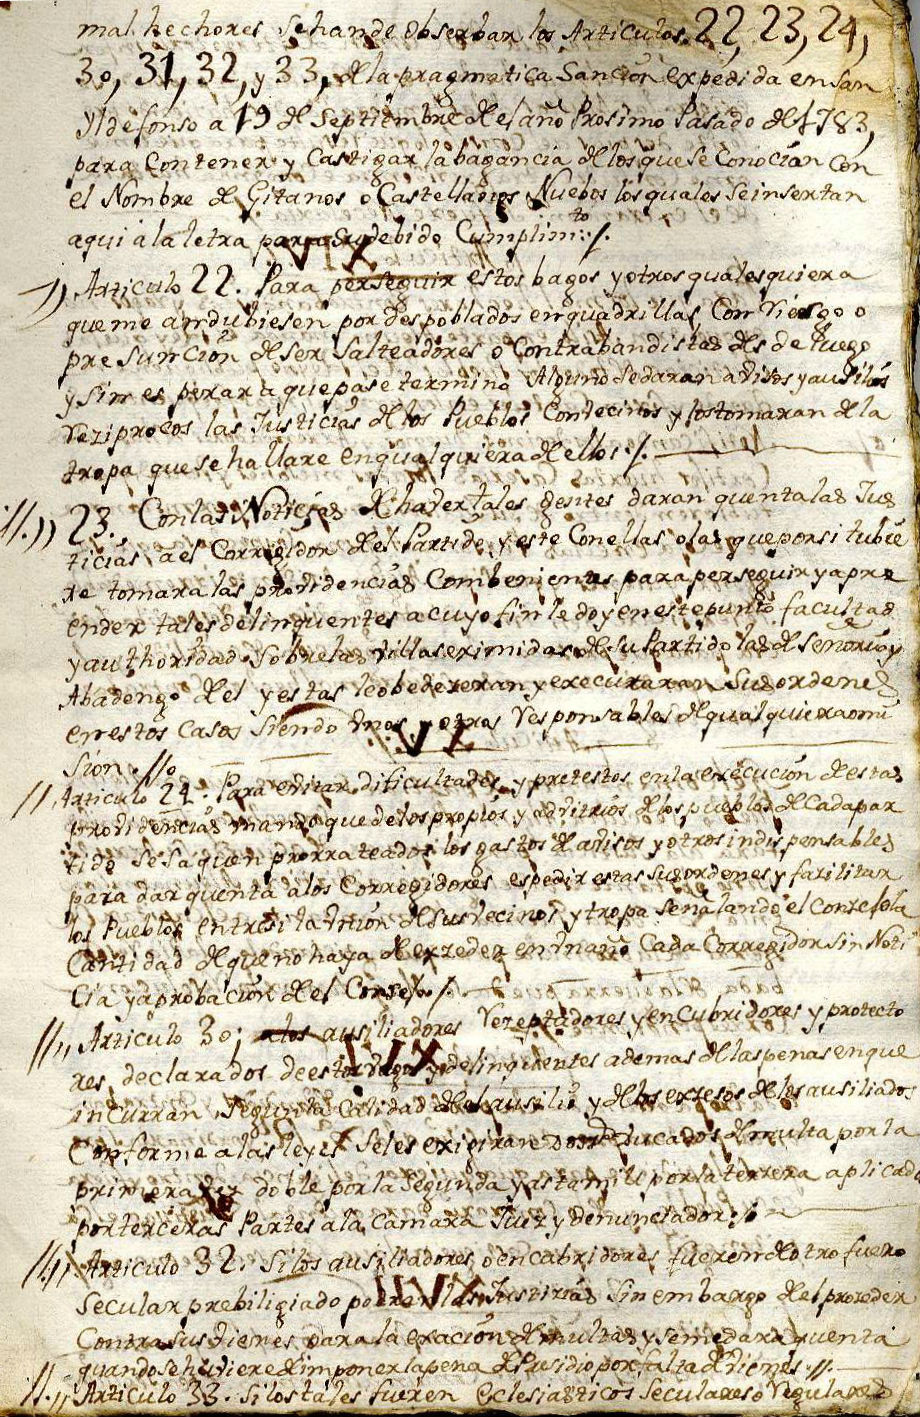 mal hechores se han de Obserbar los Articulos 22, 23, 24,
30, 31, 32, y 33, de la pragmatica Sancion expedida en San
Yldefonso a 19 de Septiembre del año Prosimo Pasado de 1783,
para Contener y Castigar la bagancia de los que se Conocian con
el Nombre de Gitanos o Castellanos Nuebos los quales se insertan
aqui a la letra para su debido Cumplim:to /.
Articulo 22. Para perseguir estos bagos y otros qualesquiera
que me andubiesen por despoblados en quadrillas, Con Riesgo o
presuncion de ser Salteadores o Contrabandistas desde luego
y sin esperar a que pase termino Alguno se daran avisos y ausilios
Reziprocos las Justicias de los Pueblos Convecinos y los tomaran de la
tropa que se hallare en qualquiera de ellos ./.
23. Con las Noticias de haver tales gentes daran quenta las Jus
ticias, a el Corregidor del Partido, y este Con ellas o las que por si tubie
re tomara las providencias Combenientes para perseguir y apre
ender tales delinquentes a cuyo fin le doy en este punto facultad
y authoridad Sobre las villas eximidas de su Partido las de señorio y
Abadengo de el y estas le obedezeran y executaran Sus ordenes
en estos Casos Siendo Vnos y otros Responsables de qualquiera omi
sion.
Articulo 24. Para evitar dificultades y pretestos en la execucion de estas
providencias mando que de los propios y advitrios de los pueblos de Cada par
tido se saquen prorrateados los gastos de avisos y otros indispensables
para dar quenta a los Corregidores espedir estas Sus ordenes y facilitar
los Pueblos entre si la Vnion de sus vecinos y tropa señalando el Consejo la
Cantidad de que no haya de exzeder en Vn año Cada Corregidor sin Noti
cia y aprobacion de el Consejo ./.
Articulo 30, a los ausiliadores Rezeptadores y encubridores y protecto
res, declarados de estos vagos y delinquentes ademas de las penas en que
incurran segun la Calidad del ausilio y de los exzesos de los ausiliados
Conforme a las leyes se les exigiran ducados de multa por la
primera vez doble por la segunda y asta mil por la terzera aplicados
por terceras Partes a la Camara Juez y denunciador
Articulo 32. Si los ausiliadores o encubridores fueren de otro fuero
Secular prebiligiado podran las Justicias sin embargo de el proceder
Contra sus vienes para la exacion de multas y se me dara quenta
quando se huviere de imponer la pena de Presidio por falta de vienes.
Articulo 33. Si los tales fueren Eclesiasticos Seculares o Regulares